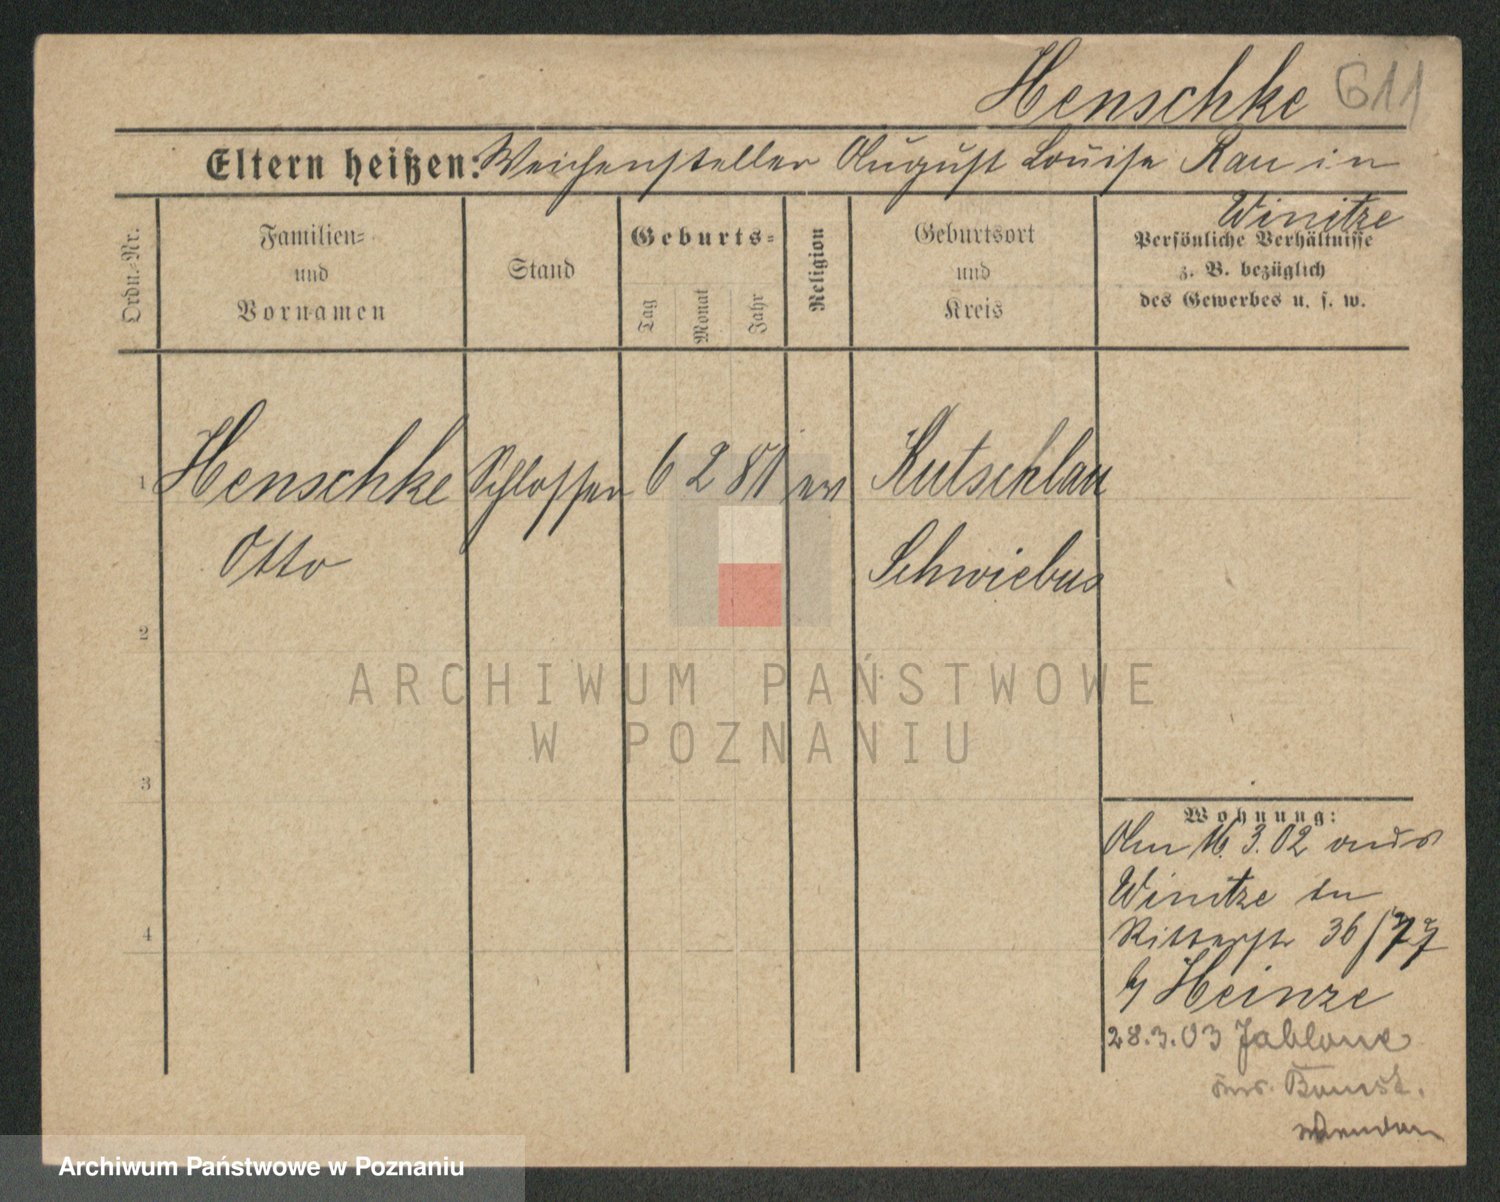 Henschke 611
Eltern heißen: Weichensteller August Louise Rau in
Winitze
Ordn.-Nr.
Familien-
und
Vornamen
Stand
Geburts-
Tag
Monat
Jahr
Religion
Geburtsort
und
Kreis
Persönliche Verhältnisse
z. B. bezüglich
des Gewerbes u. s. w.
1 Henschke Schlosser 6 2 81 ev Kutschlau
Otto Schwiebus
2
3
4
Wohnung:
Am 16.3.02 aus
Winitze in
Ritterstr 36
b/ Heinze
28.3.03 Jablone
Bomst.
ARCHIWUM PAŃSTWOWE
W POZNANIU
Archiwum Państwowe w Poznaniu